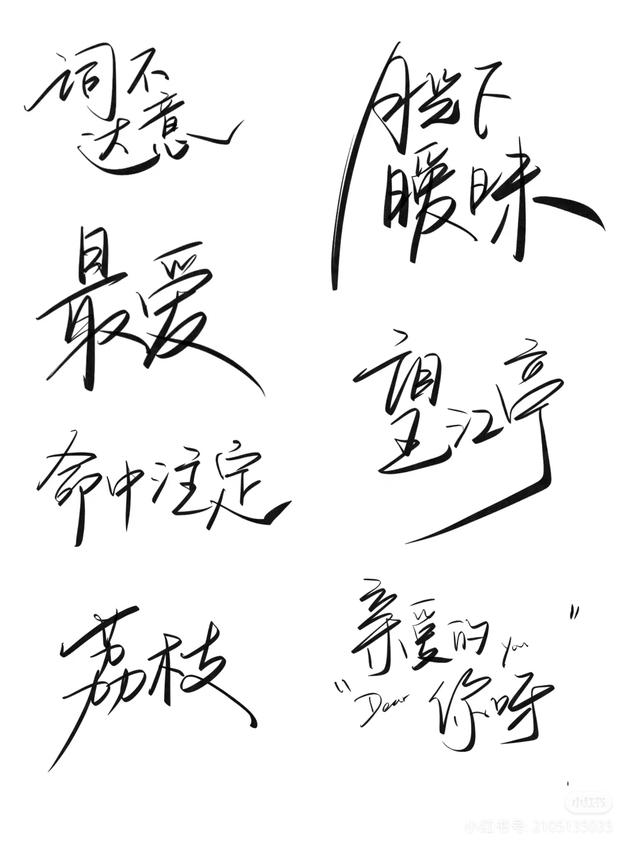 词不
达意
月光下
暧昧
最爱
望江亭
命中注定
荔枝
亲爱的 you
"Dear 你呀"
小红书
小红书号: 2105135035